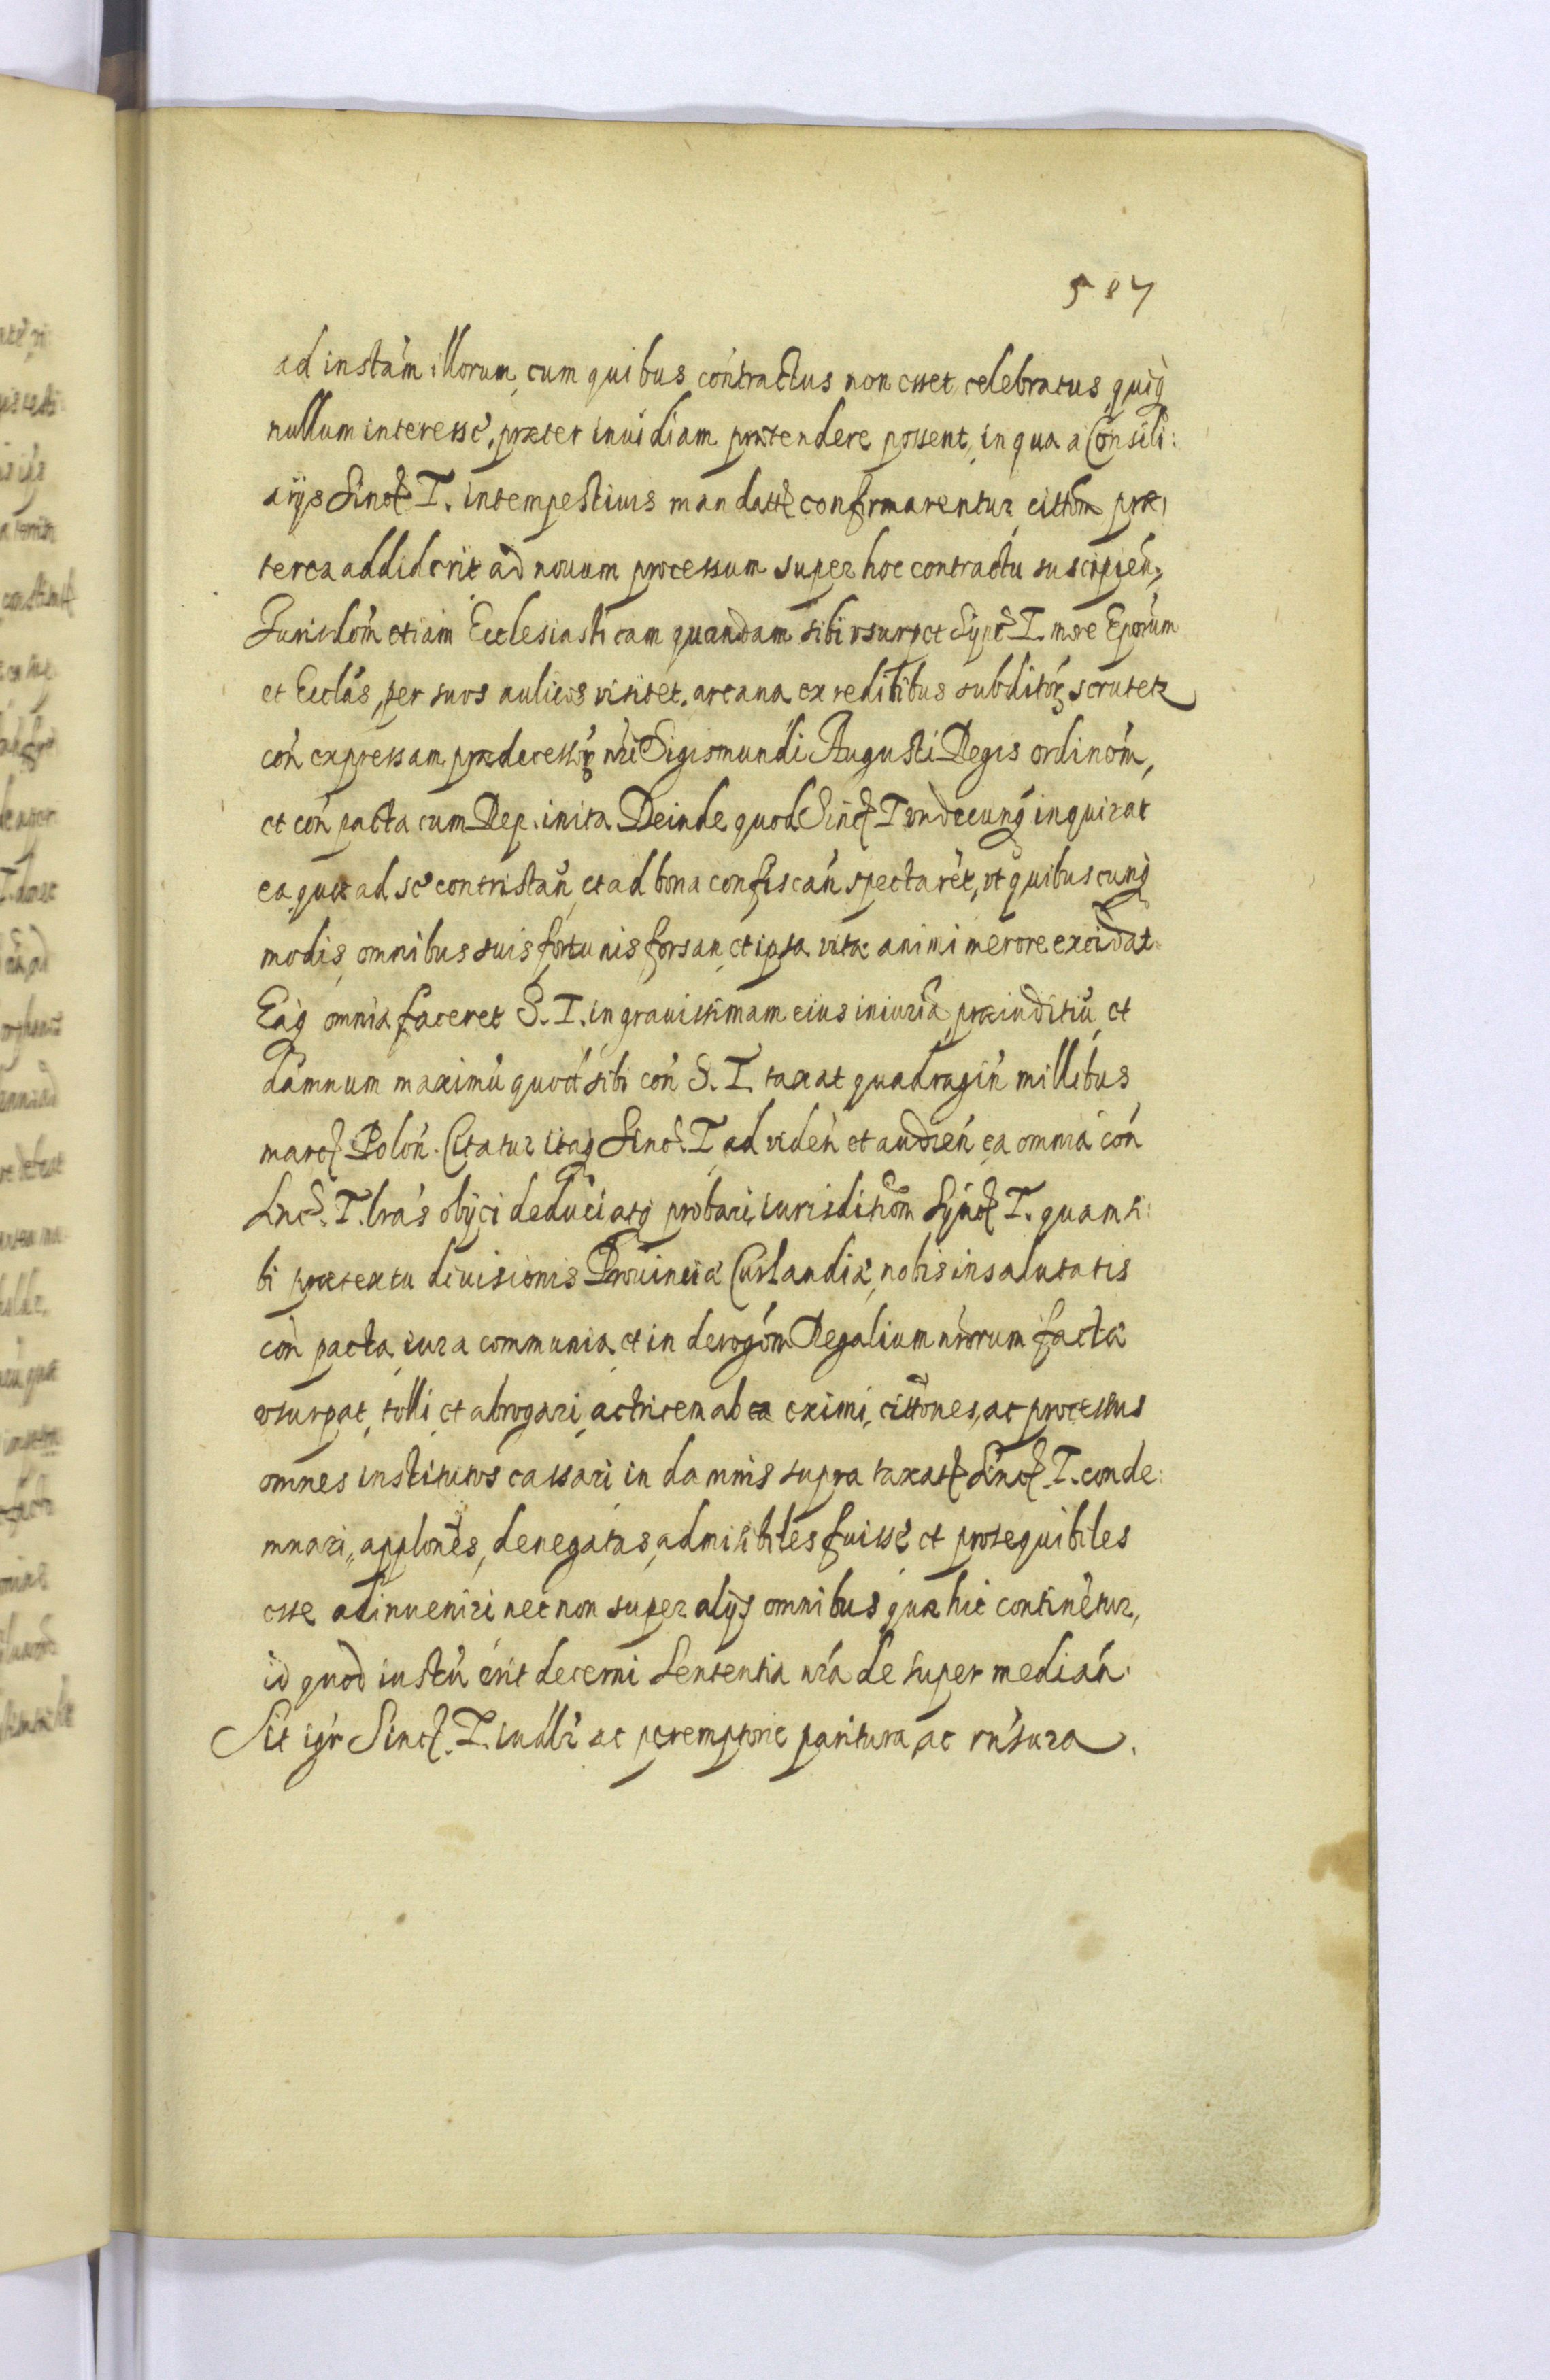 587
ad instam illorum, cum quibus contractus non esset celebratus, quiq
nullum interesse, præter inuidiam prætendere possent, in qua a Consili:
arijs Sinctis T. intempestiuis mandatis confirmarentur, cittom præ
terea addiderit ad nouum processum super hoc contractu suscipien,
Jurisdom etiam Ecclesiasticam quandam sibi vsurpet T. more Eporum
et Ecclas, per suos aulicos visitet, arcana ex reditibus subditor scrutetur
con expressam prædecessor nri Sigismundi Augusti Regis ordinom,
et con pacta cum Rep. inita Deinde quod Sinctis T vndecunq inquirat
ea quæ ad se contristan, et ad bona confiscan spectaret, vt quibuscunq
modis, omnibus suis fortunis forsan, et ipsa vita animi merore excidat
Eaq omnia faceret S. T. in grauissimam eius iniuria, præiuditiu, et
damnum maximu quod sibi con S. T. taxat quadragin millibus
marcis Polon. Citatur itaq Sinct. T ad viden et audien ea omnia con
Snct. T. lras obijci deduci atq probari, iurisditiom Synctis T. quam si:
bi prætextu diuisionis Prouinciæ Curlandiæ, nobis insalutatis
con pacta iura communia et in derogom Regalium nrorum facta
vsurpat, tolli et abrogari, actricem ab ea eximi, cittones, ac processus
omnes institutos cassari in damnis supra taxatis Sinctis T. conde:
mnari, applones, denegatas, admisibiles fuisse et prosequibiles
esse adinueniri nec non super alijs omnibus quæ hic continetur,
id quod iustu erit decerni Sententia nra de super median.
Sit igr Sinctis. T. iudlr ac peremptorie paritura, ac rnsura.